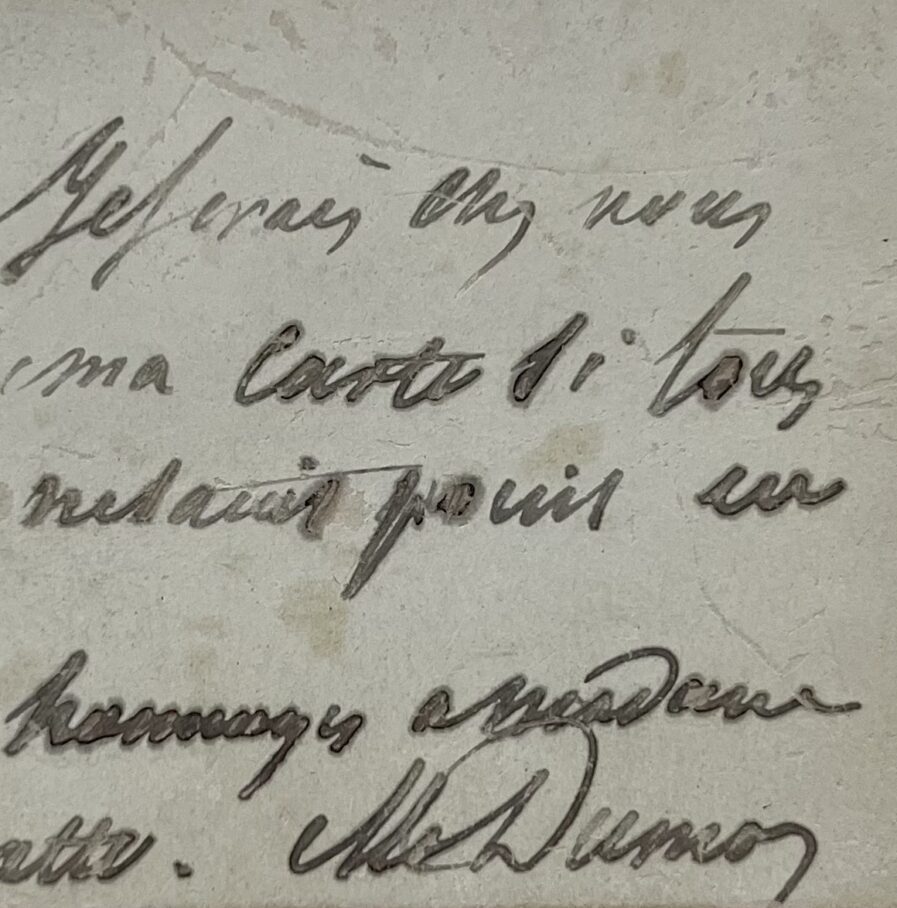 Je serais chez vous
ma carte si tous
n'etais point en
hommages a madame
Dumas